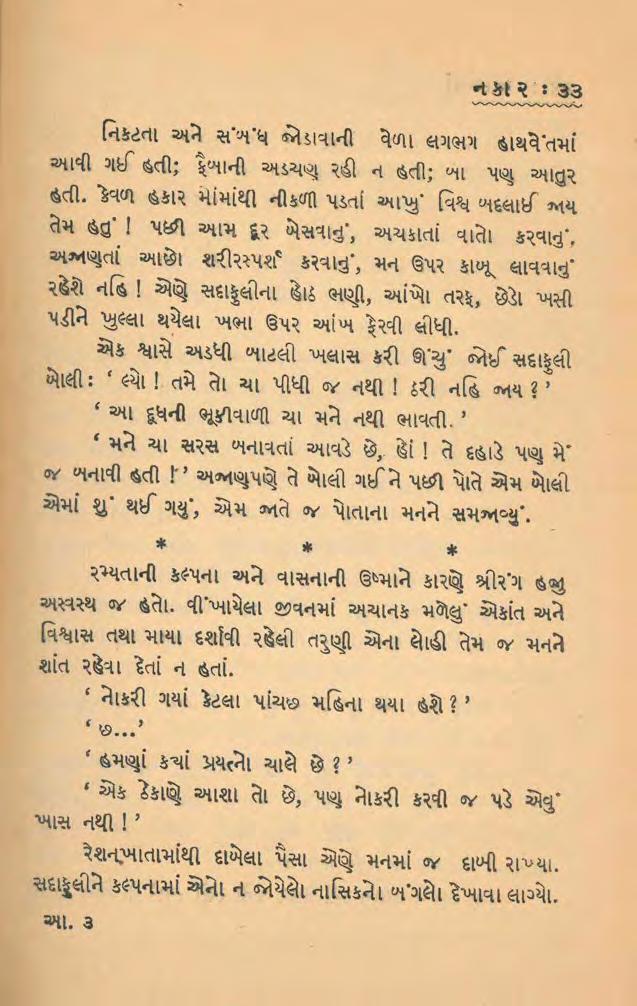 નકાર : ૩૩
નિકટતા અને સંબંધ જોડાવાની વેળા લગભગ હાથવેંતમાં
આવી ગઈ હતી; ફૈબાની અડચણ રહી ન હતી; બા પણ આતુર
હતી. કેવળ હકાર મોંમાંથી નીકળી પડતાં આખું વિશ્વ બદલાઈ જાય
તેમ હતું ! પછી આમ દૂર બેસવાનું, અચકાતાં વાતો કરવાનું,
અજાણતાં આછો શરીરસ્પર્શ કરવાનું, મન ઉપર કાબૂ લાવવાનું
રહેશે નહિ ! એણે સદાફુલીના હોઠ ભણી, આંખો તરફ, છેડો ખસી
પડીને ખુલ્લા થયેલા ખભા ઉપર આંખ ફેરવી લીધી.
એક શ્વાસે અડધી બાટલી ખલાસ કરી ઊંચું જોઈ સદાફુલી
બોલી : ‘ લ્યો ! તમે તો ચા પીધી જ નથી ! ઠરી નહિ જાય ? ’
‘ આ દૂધની ભૂકીવાળી ચા મને નથી ભાવતી. ’
‘ મને ચા સરસ બનાવતાં આવડે છે, હોં ! તે દહાડે પણ મેં
જ બનાવી હતી !’ અજાણપણે તે બોલી ગઈ ને પછી પોતે એમ બોલી
એમાં શું થઈ ગયું, એમ જાતે જ પોતાના મનને સમજાવ્યું.
* * *
રમ્યતાની કલ્પના અને વાસનાની ઉષ્માને કારણે શ્રીરંગ હજી
અસ્વસ્થ જ હતો. વીંખાયેલા જીવનમાં અચાનક મળેલું એકાંત અને
વિશ્વાસ તથા માયા દર્શાવી રહેલી તરુણી એના લોહી તેમ જ મનને
શાંત રહેવા દેતાં ન હતાં.
‘ નોકરી ગયાં કેટલા પાંચછ મહિના થયા હશે ? ’
‘ છ...’
‘ હમણાં ક્યાં પ્રયત્નો ચાલે છે ? ’
‘ એક ઠેકાણે આશા તો છે, પણ નોકરી કરવી જ પડે એવું
ખાસ નથી ! ’
રેશનખાતામાંથી દાબેલા પૈસા એણે મનમાં જ દાબી રાખ્યા.
સદાફુલીને કલ્પનામાં એનો ન જોયેલો નાસિકનો બંગલો દેખાવા લાગ્યો.
આ. ૩